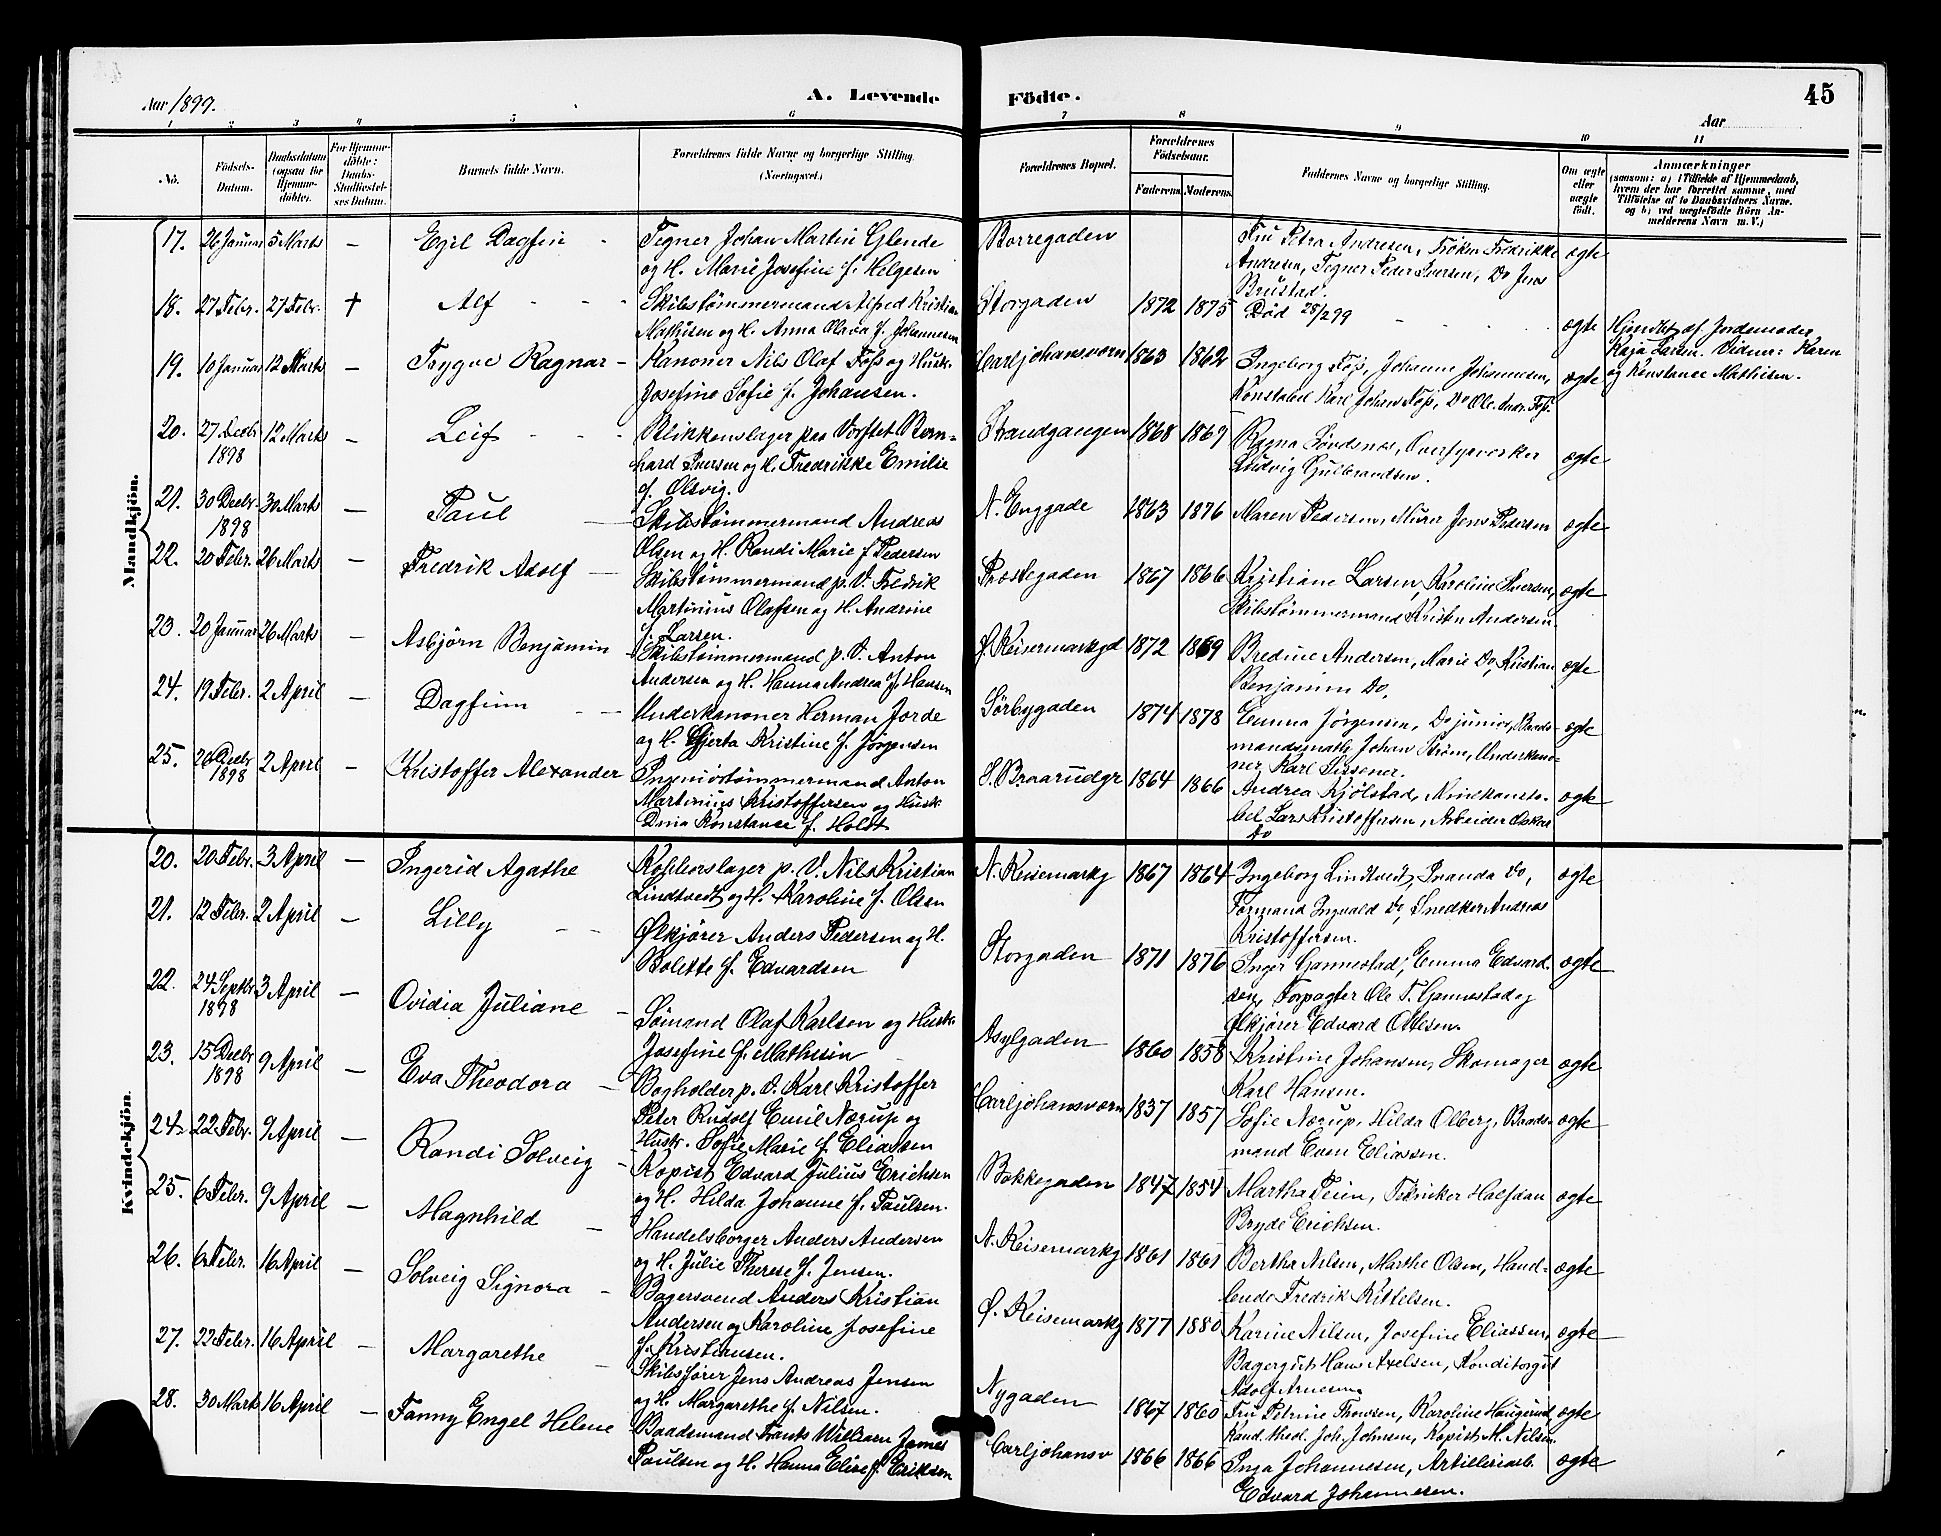 45
Aar 1899.
A. Levende
Födte.
Aar
1 2 3 4 5 6 7 8 9 10 11
No.
Födsels-Datum.
Daabsdatum (ogsaa for Hjemmedöbte).
For Hjemmedöbte: Daabs-Stadfæstelses Datum.
Barnets fulde Navn.
Forældrenes fulde Navne og borgerlige Stilling.
(Næringsvei.)
Forældrenes Bopæl.
Forældrenes Födselsaar.
Faderens. Moderens.
Faddernes Navne og borgerlige Stilling.
Om ægte eller uægte födt.
Anmærkninger
(saasom: a) i Tilfælde af Hjemmedaab,
hvem der har forrettet samme, med
Tilföielse af to Daabsvidners Navne.
og b) ved uægtefödte Börn An-
melderens Navn m. V.)
Mandkjön.
17. 26 Januar 5 Marts — Egil Dagfin - Tegner Johan Martin Glende
og H. Marie Josefine f. Helgesen
Borregaden
Fru Petra Andresen, Frøken Fredrikke
Andresen, Tegner Peder Iversen, Do Jens
Brustad.
ægte
18. 27 Febr. 27 Febr. † Alf - - - Skibstømmermand Alfred Kristian
Mathisen og H. Anna Olava f. Johannesen
Storgaden 1872 1875 Død 28/2 99
ægte
Hjemdbt af Jordemoder
Kaja Larsen. Vidner: Karen
og Konstance Mathisen.
19. 10 Januar 12 Marts — Trygve Ragnar - Kanoner Nils Olaf Foss og Hust.
Josefine Sofie f. Johansen.
Carljohansværn 1863 1862 Ingeborg Foss, Johanne Johannesen,
Konstabel Karl Johan Foss, Do Ole Andr. Foss.
ægte
20. 27 Decbr 1898 12 Marts — Leif - - - Blikkenslager paa Værftet Bern-
hard Iversen og H. Fredrikke Emilie
f. Olsvig.
Strandgangen 1868 1867 Ragna
Ludvig Gulbrandsen.
ægte
21. 30 Decbr. 1898 30 Marts — Paul — Skibstømmermand Andreas
Olsen og H. Randi Marie f Pedersen
N. Enggade 1863 1876 Maren Pedersen, Murer Jens Pedersen ægte
22. 20 Febr. 26 Marts — Fredrik Adolf — Skibstømmermand p. V. Fredrik
Martinius Olafsen og H. Andrine
f. Larsen.
Præstegaden 1867 1866 Kristiane Larsen, Karoline Iversen,
Skibstømmermand Kristen Andersen.
ægte
23. 20 Januar 26 Marts — Asbjørn Benjamin - Skibstømmermand p. V. Anton
Andersen og H. Hanna Andrea f. Hansen
Ø. Keisermarkgd 1872 1869 Bredine Andersen, Marie Do, Kristian
Benjamin Do.
ægte
24. 19 Febr. 2 April — Dagfinn - - Underkanoner Herman Jorde
og H. Gjerta Kristine f. Jørgensen
Sørbygaden 1874 1878 Emma Jørgensen, Do junior, Baads-
mandsmath Johan Strøm, Underkano-
ner Karl Sissener.
ægte
25. 26 Decbr 1898 2 April — Kristoffer Alexander Ingeniørtømmermand Anton
Martinius Kristoffersen og Hust.
Dina Konstance f. Holst
S. Braarudgt 1864 1866 Andrea Kjølstad, Minekonsta-
bel Lars Kristoffersen, Arbeider Oskar
Do
ægte
Kvindekjön.
20. 20 Febr. 3 April — Ingerid Agathe Kobberslager p. V. Nils Kristian
Lindtvedt og H. Karoline f. Olsen
N. Keisemarkg 1867 1864 Ingeborg Lindtvedt, Inanda Do,
Formand Ingvald Do, Snedker Andreas
Kristoffersen.
ægte
21. 12 Febr. 2 April — Lilly - - Ølkjører Anders Pedersen og H.
Bolette f. Edvardsen
Storgaden 1871 1876 Inger Gannestad, Emma Edvard-
sen, Forpagter Ole T. Gannestad og
Ølkjører Edvard Olsen.
ægte
22. 24 Septbr 1898 3 April — Ovidia Juliane - Sømand Olaf Karlsen og Hust.
Josefine f. Mathisen
Asylgaden 1860 1858 Kristine Johansen, Skomager
Karl Hansen.
ægte
23. 15 Decbr 1898 9 April — Eva Theodora - Bogholder p. V. Karl Kristoffer
Peter Rudolf Emil Nærup og
Hustr. Sofie Marie f. Eliassen
Carljohansværn 1837 1857 Sofie Nærup, Hilda Olberg, Baads-
mand Even Eliassen.
ægte
24. 22 Febr. 9 April — Randi Solveig - Kopist Edvard Julius Erichsen
og H. Hilda Johanne f. Paulsen.
Bakkegaden 1847 1854 Martha Tein, Tekniker Halfdan
Bryde Erichsen.
ægte
25. 6 Febr. 9 April — Magnhild - Handelsborger Anders Andersen
og H. Julie Therese f. Jensen.
N. Keisemarkg 1861 1861 Bertha Nilsen, Marthe Olsen, Hand-
lende Fredrik Kittelsen.
ægte
26. 6 Febr. 16 April — Solveig Signora - Bagersvend Anders Kristian
Andersen og Karoline Josefine
f. Kristiansen.
Ø. Keisemarkg 1877 1880 Karine Nilsen, Josefine Eliassen,
Bagergut Hans Axelsen, Konditorgut
Adolf Arnesen.
ægte
27. 22 Febr. 16 April — Margarethe - Skibsfører Jens Andreas Jensen
og H. Margarethe f. Nilsen.
Nygaden 1867 1860 Fru Petrine Thowsen, Karoline Haugerud,
Kand. theol. Joh. Johnsen, Kopist M. Nilsen.
ægte
28. 30 Marts 16 April — Fanny Engel Helene Baadsmand Frants William James
Paulsen og H. Hanna Elise f. Eriksen
Carljohansv 1866 1866 Inga Johannesen, Artilleriarb.
Edvard Johannesen.
ægte